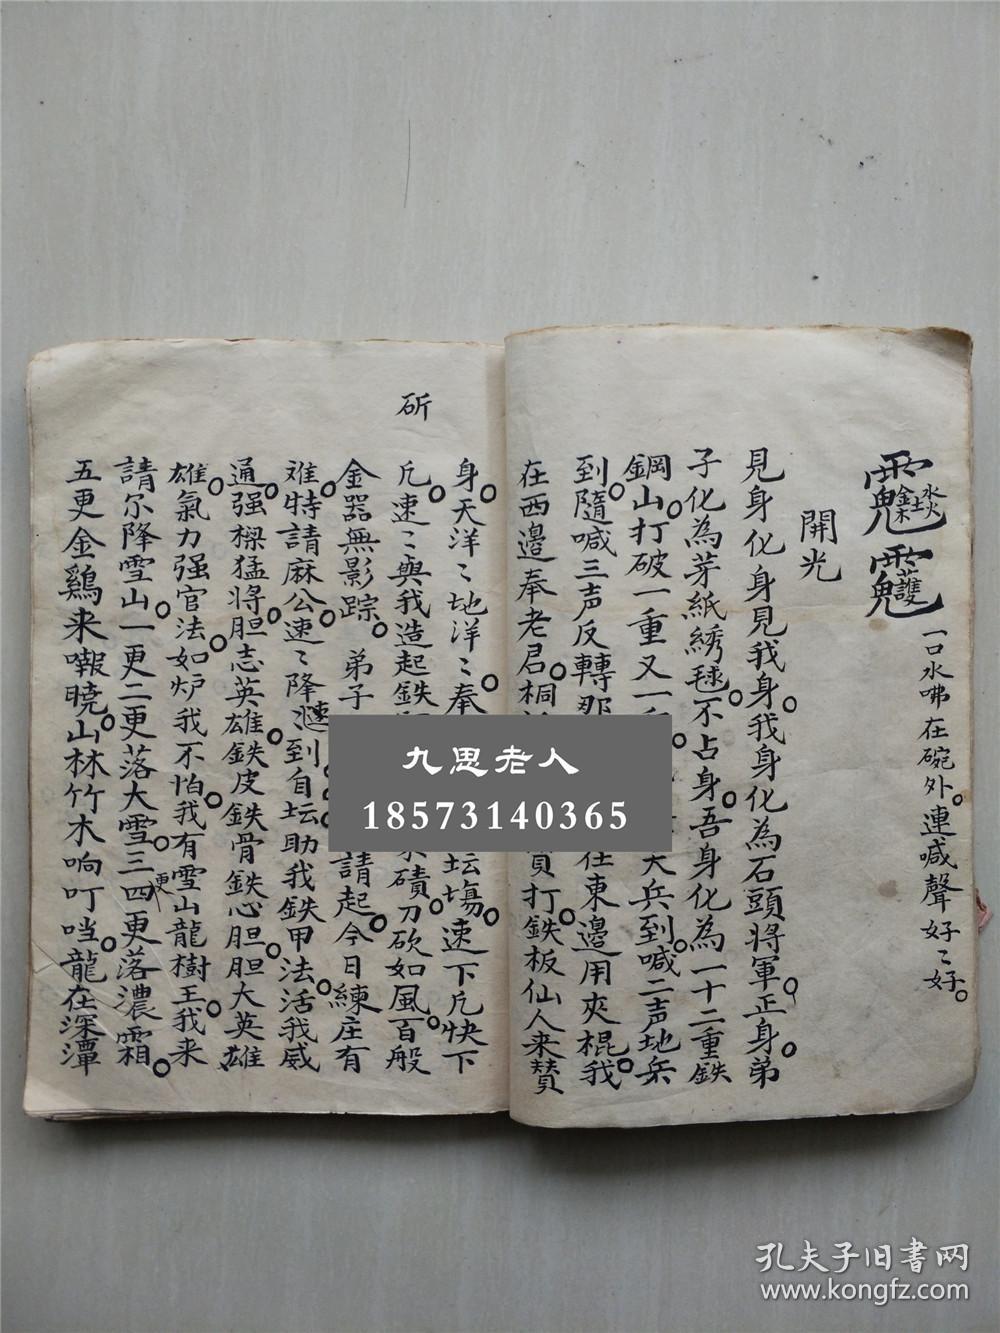 水火土金木 護 一口水咈在碗外。連喊聲好〻好。
開光
見身化身見我身。我身化為石頭將軍正身。弟
子化為芽紙綉毬。不占身。吾身化為一十二重鉄
鋼山。打破一重又一
天兵到。喊二声地兵
到。隨喊三声反轉那
在東邊用夾棍。我
在西邊奉老君。桐
打。鉄板仙人来賛
斫
身。天洋〻地洋〻奉
坛塲。速下凡快下
凡。速〻與我造起鉄
磧。刀砍如風。百般
金器無影踪。弟子
請起。今日練庄有
难。特請麻公。速〻降速到自坛助我鉄甲法。活我威
通。强樑猛将。胆志英雄。鉄皮鉄骨鉄心胆。胆大英雄
雄。氣力强官法。如炉我不怕。我有雪山龍樹王。我来
請尔降雪山。一更二更落大雪。三四更落濃霜。
更
五更金鷄来喺曉。山林竹木响叮当。龍在深潭
九思老人
18573140365
孔夫子旧書网
www.kongfz.com